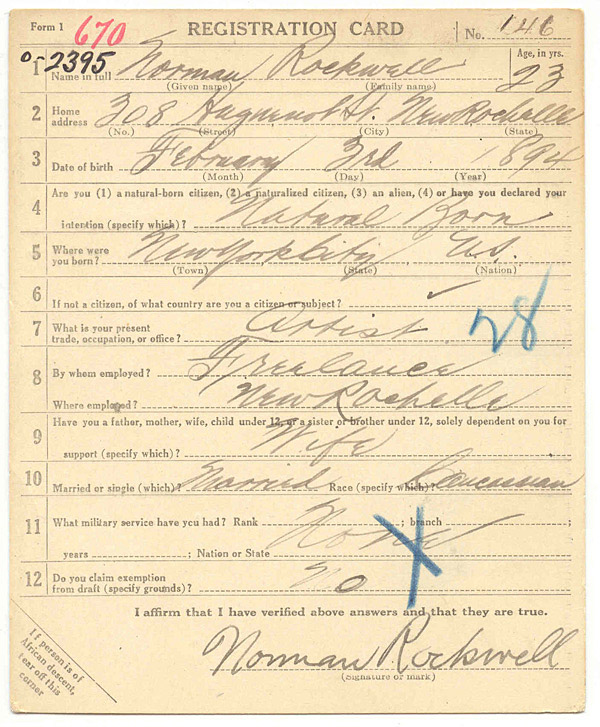 Form 1 670 REGISTRATION CARD No. 146
2395
1 Name in full Norman Rockwell Age, in yrs. 23
(Given name) (Family name)
2 Home address 308 St. New Rochelle
(No.) (Street) (City) (State)
3 Date of birth February 3rd 1894
(Month) (Day) (Year)
4 Are you (1) a natural-born citizen, (2) a naturalized citizen, (3) an alien, (4) or have you declared your
intention (specify which)? Natural Born
5 Where were you born? New York City U.S.
(Town) (State) (Nation)
6 If not a citizen, of what country are you a citizen or subject? ✓
7 What is your present
trade, occupation, or office? Artist 28
8 By whom employed? Freelance
Where employed? New Rochelle
9 Have you a father, mother, wife, child under 12, or a sister or brother under 12, solely dependent on you for
support (specify which)? Wife
10 Married or single (which)? Married Race (specify which)? Caucassian
11 What military service have you had? Rank None; branch ;
years ; Nation or State
12 Do you claim exemption
from draft (specify grounds)? No X
I affirm that I have verified above answers and that they are true.
Norman Rockwell
(Signature or mark)
If person is of
African descent,
tear off this
corner